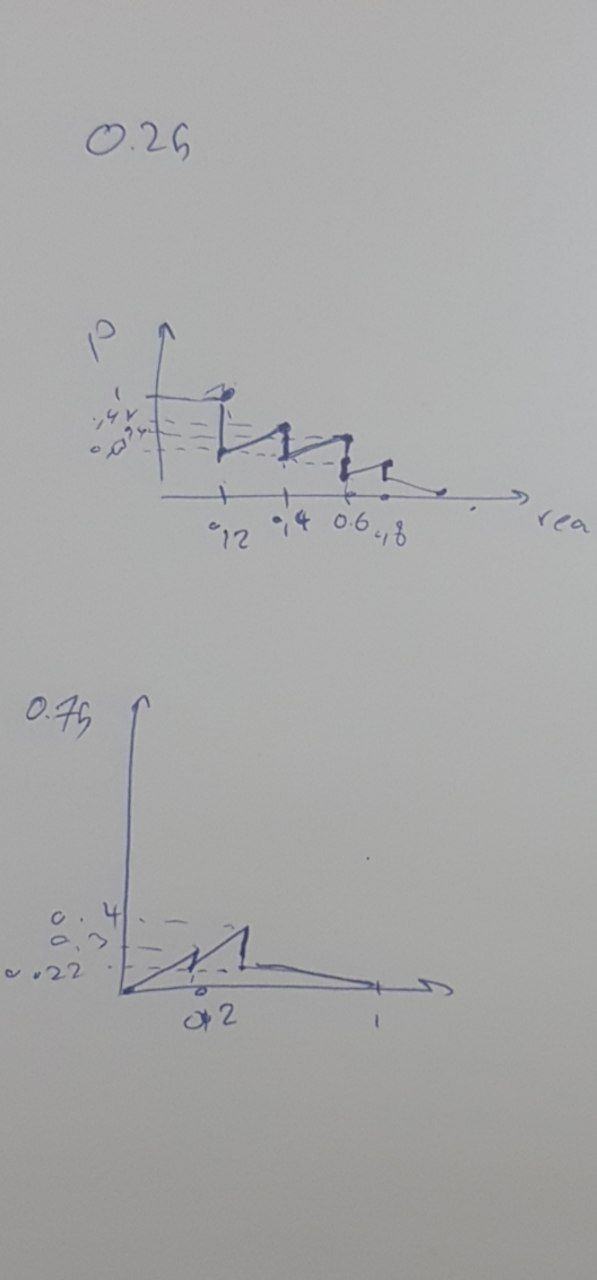 0.25
P
1
0,2
0,4
0.6
,8
rea
0.75
0.4
0.3
0.22
0,2
1